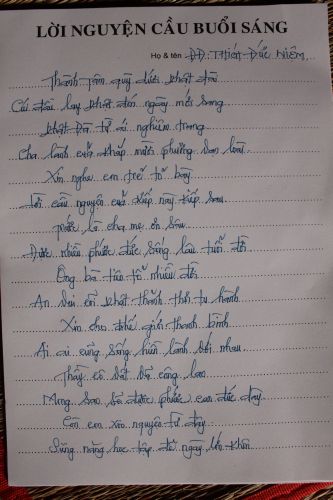 LỜI NGUYỆN CẦU BUỔI SÁNG
Họ & tên ĐĐ: Thiện Đức Niệm
Thành tâm quỳ dưới Phật đài
Cúi đầu lạy Phật đón ngày mới sang
Phật Đà từ ái nghiêm trang
Cha lành của khắp mười phương
Xin nghe em trẻ tỏ bày
Lời cầu nguyện của kiếp này kiếp sau
phước là cha mẹ ơn sâu
Được nhiều phước đức sống lâu tuổi đời
Ông bà tiên tổ nhiều đời
An vui cõi Phật thảnh thơi tu hành
Xin cho thế giới thanh bình
Ai ai cũng sống hiền lành với nhau
Thầy cô vất vả công lao
Mong sao có được phước cao đức dày
Còn em xin nguyện từ đây
Siêng năng học tập để ngày lớn khôn